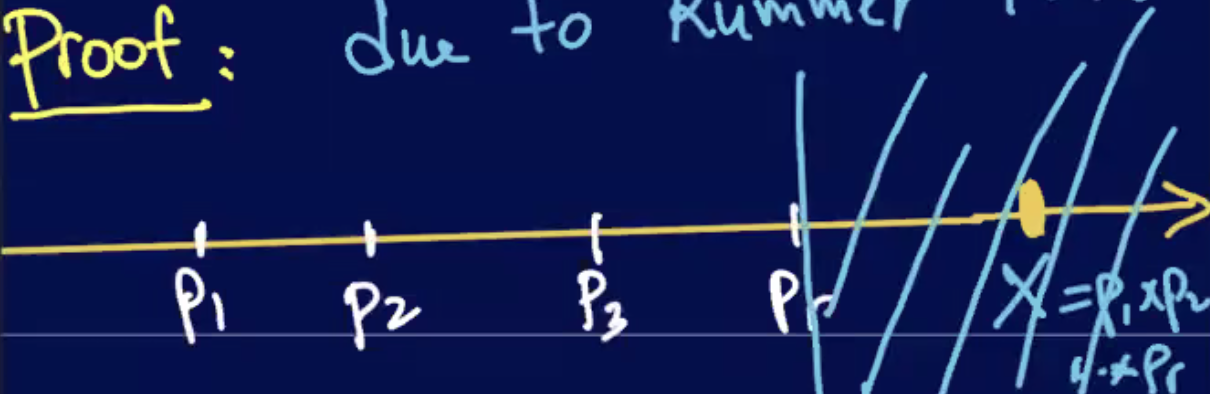 Proof: due to Kummer
P1 P2 P3 Pr
X = P1 x P2
Pr